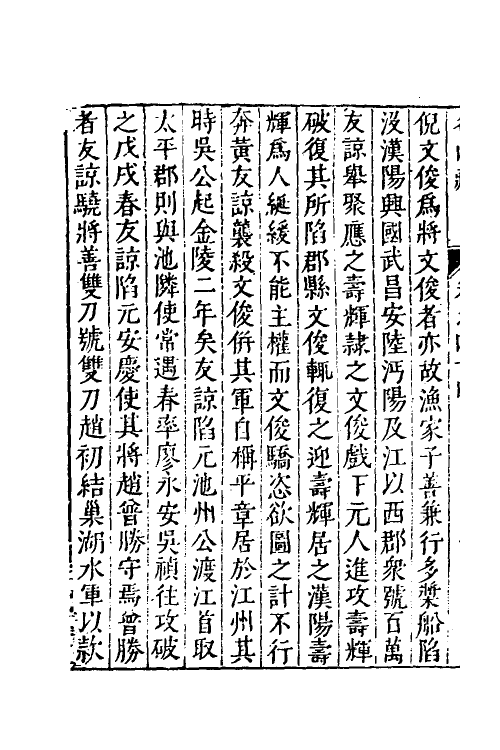 倪文俊爲將文俊者亦故漁家子善兼行多槳船陷
沒漢陽興國武昌安陸沔陽及江以西郡衆號百萬
友諒舉聚應之壽輝隷之文俊戲下元人進攻壽輝
破復其所陷郡縣文俊輒復之迎壽輝居之漢陽壽
輝爲人綖緩不能主權而文俊驕恣欲圖之計不行
奔黃友諒襲殺文俊併其軍自稱平章居於江州其
時吳公起金陵二年矣友諒陷元池州公渡江首取
太平郡則與池隣使常遇春率廖永安吳禎往攻破
之戊戌春友諒陷元安慶使其將趙曾勝守焉曾勝
者友諒驍將善雙刀號雙刀趙初結巢湖水軍以款